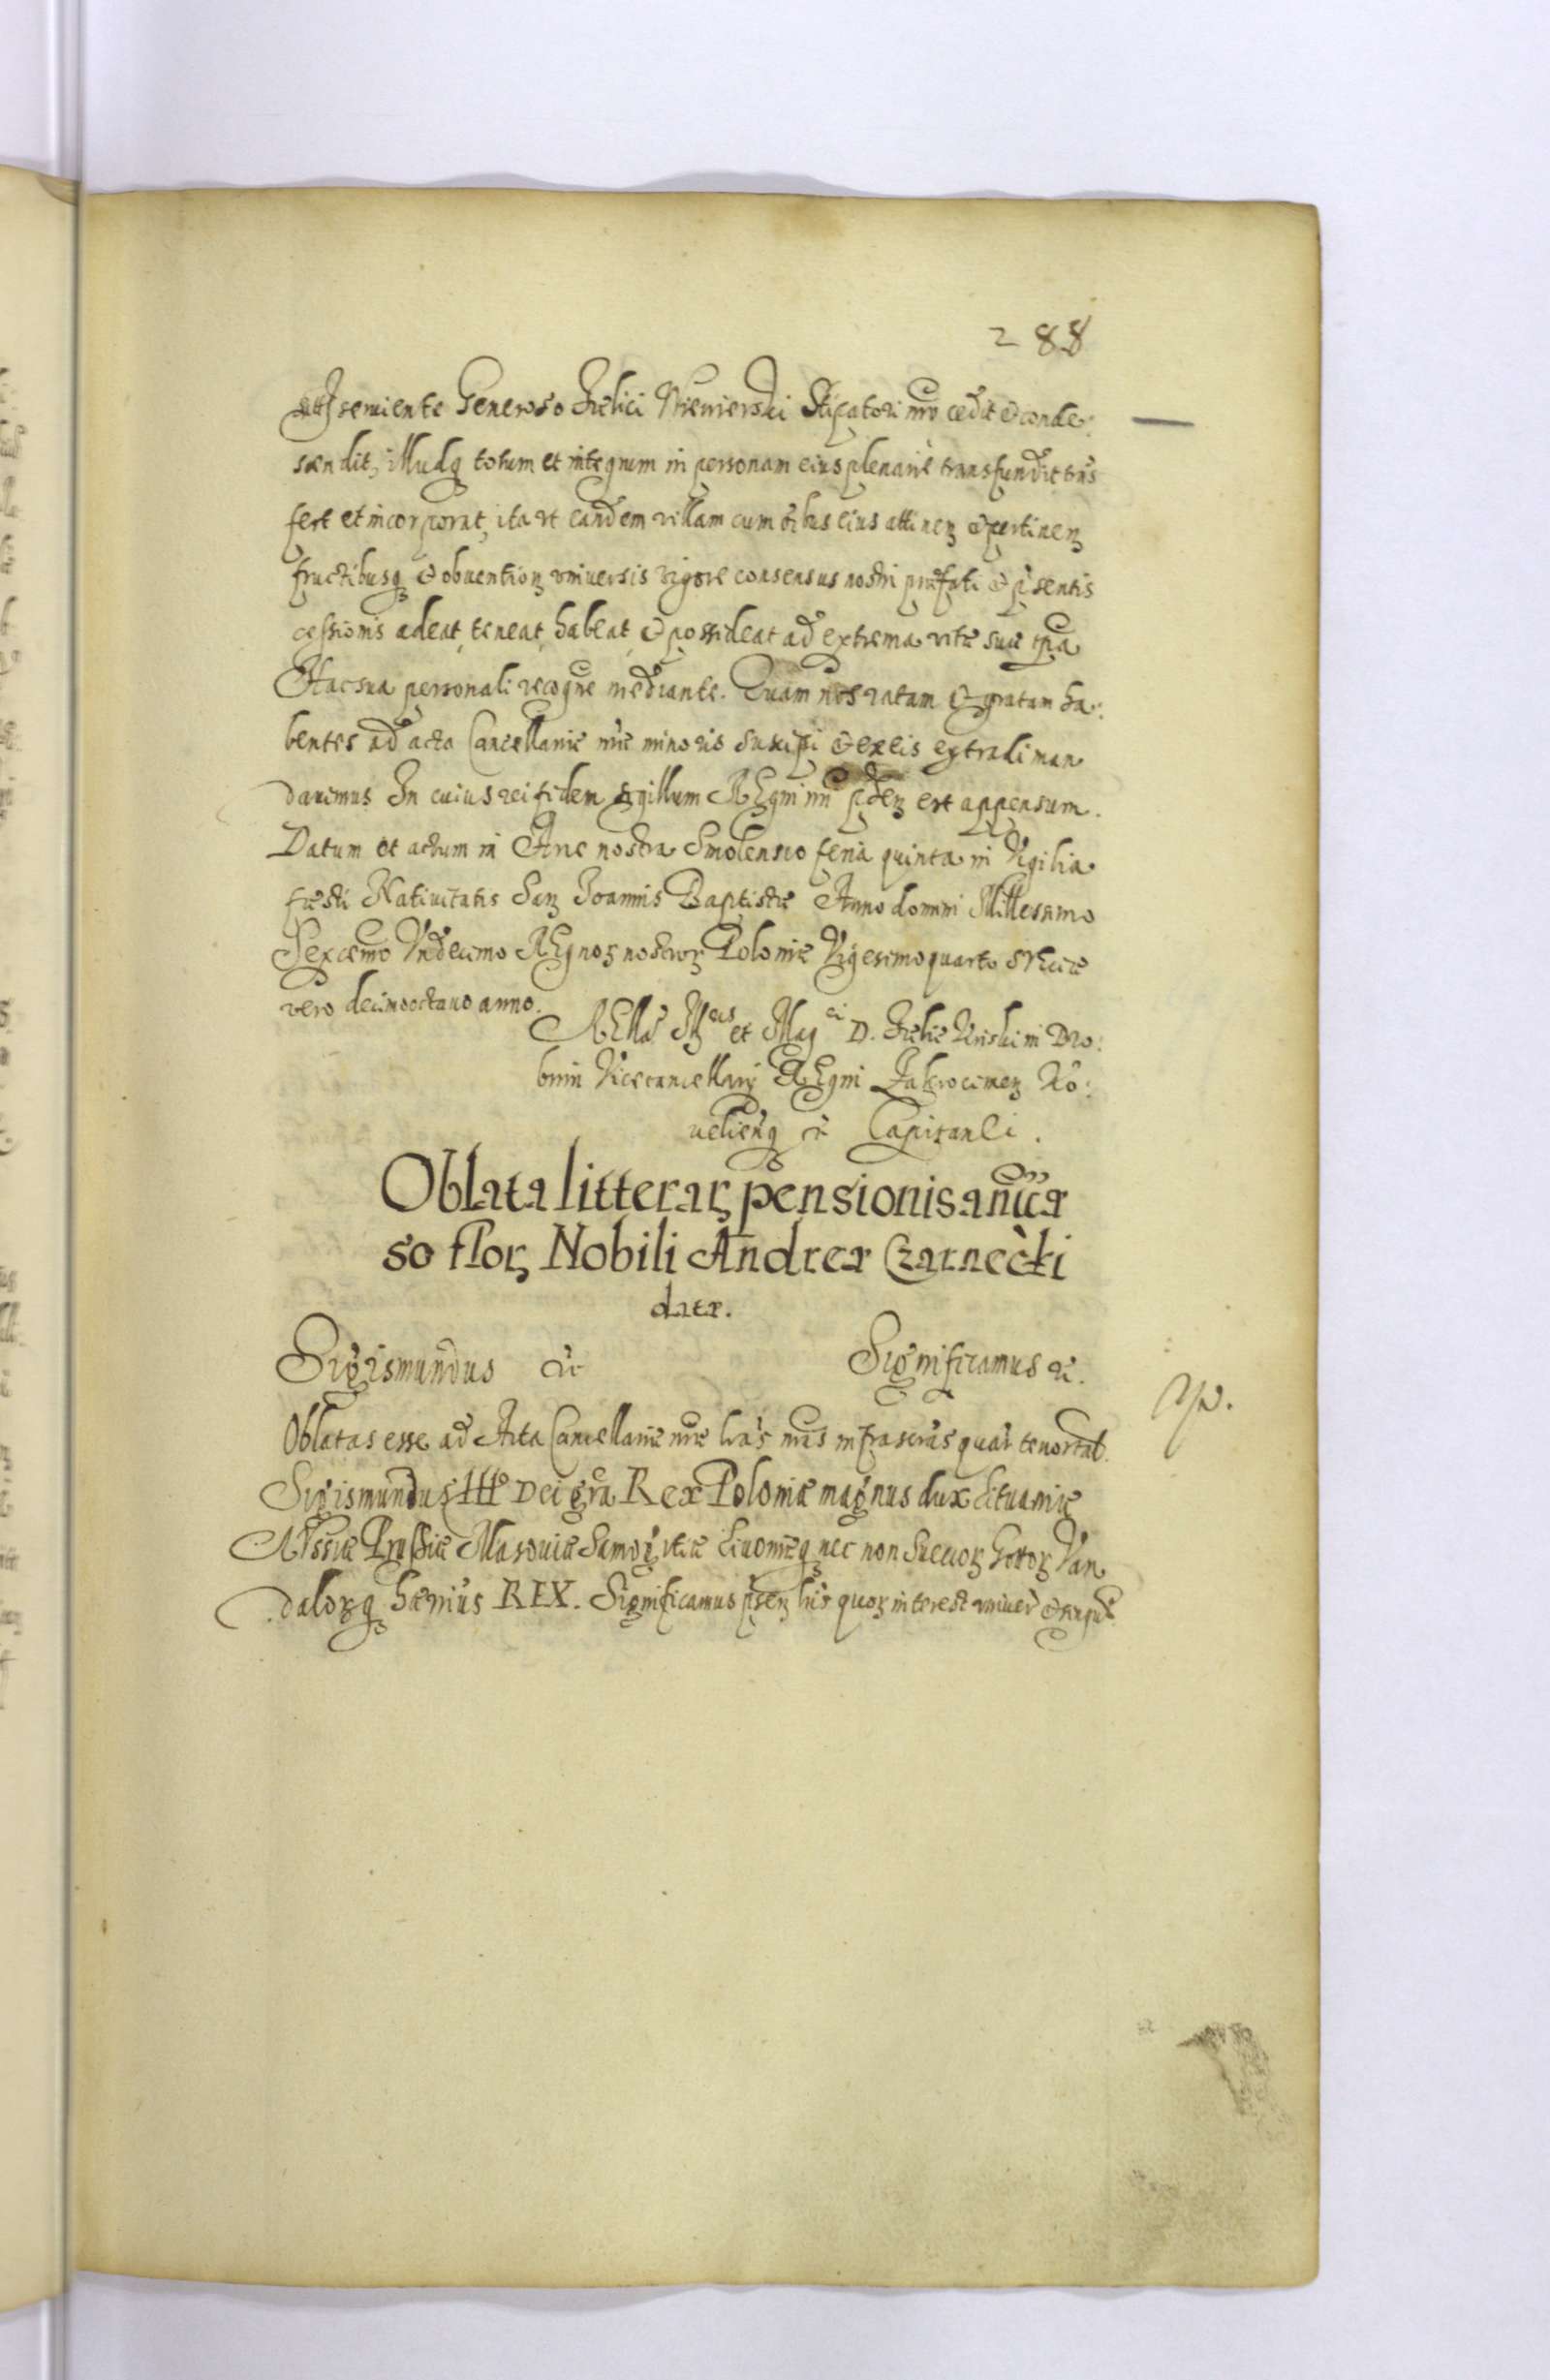 288
inseruiente Generoso Felici Niemierski Stipatori nrõ cedit et conde:
scendit, illudq totum et integrum in personam eius plenarie transfundit trãs
fert et incorporat, ita vt eandem villam cum õibus eius attinen et pertinen
fructibusq et obuention vniuersis vigore consensus nostri præfati et pñsentis
cessionis adeat, teneat, habeat, et possideat ad extrema vitæ suæ tpã
Hac sua personali recogñe mediante. Quam nos ratam et gratam ha:
bentes ad acta Cancellariæ nræ minoris suscipi et ex eis extradi man
dauimus In cuius rei fidem sigillum Regni nri est appensum.
Datum et actum in Arce nostra Smolensco feria quinta in Vigilia
festi Natiuitatis San Joannis Baptistæ Anno domini Millesimo
Sexcemo Vndecimo Regnor nostror Poloniæ Vigesimo quarto Sueciæ
vero decimooctauo anno.
Rella M et Mag ci D. Felic Kriski in Dro:
binin Vicecancellarij Regni Zakrocimen No:
Capitanei.
Oblata litterar pensionis annuæ
so flor Nobili Andreæ Czarnecki
datæ.
Sigismundus etc Significamus etc.
Oblatas esse ad Acta Cancellariæ nræ lrãs nrãs infrascrãs quar tenor tal.
Sigismundus III Dei gra Rex Poloniæ magnus dux Lituaniæ
Russiæ Prussiæ Masouiæ Samogitiæ Liuoniæq nec non Sueuor Gottor Van
dalorq hærius REX. Significamus psen lris quor interest vniuer et singul